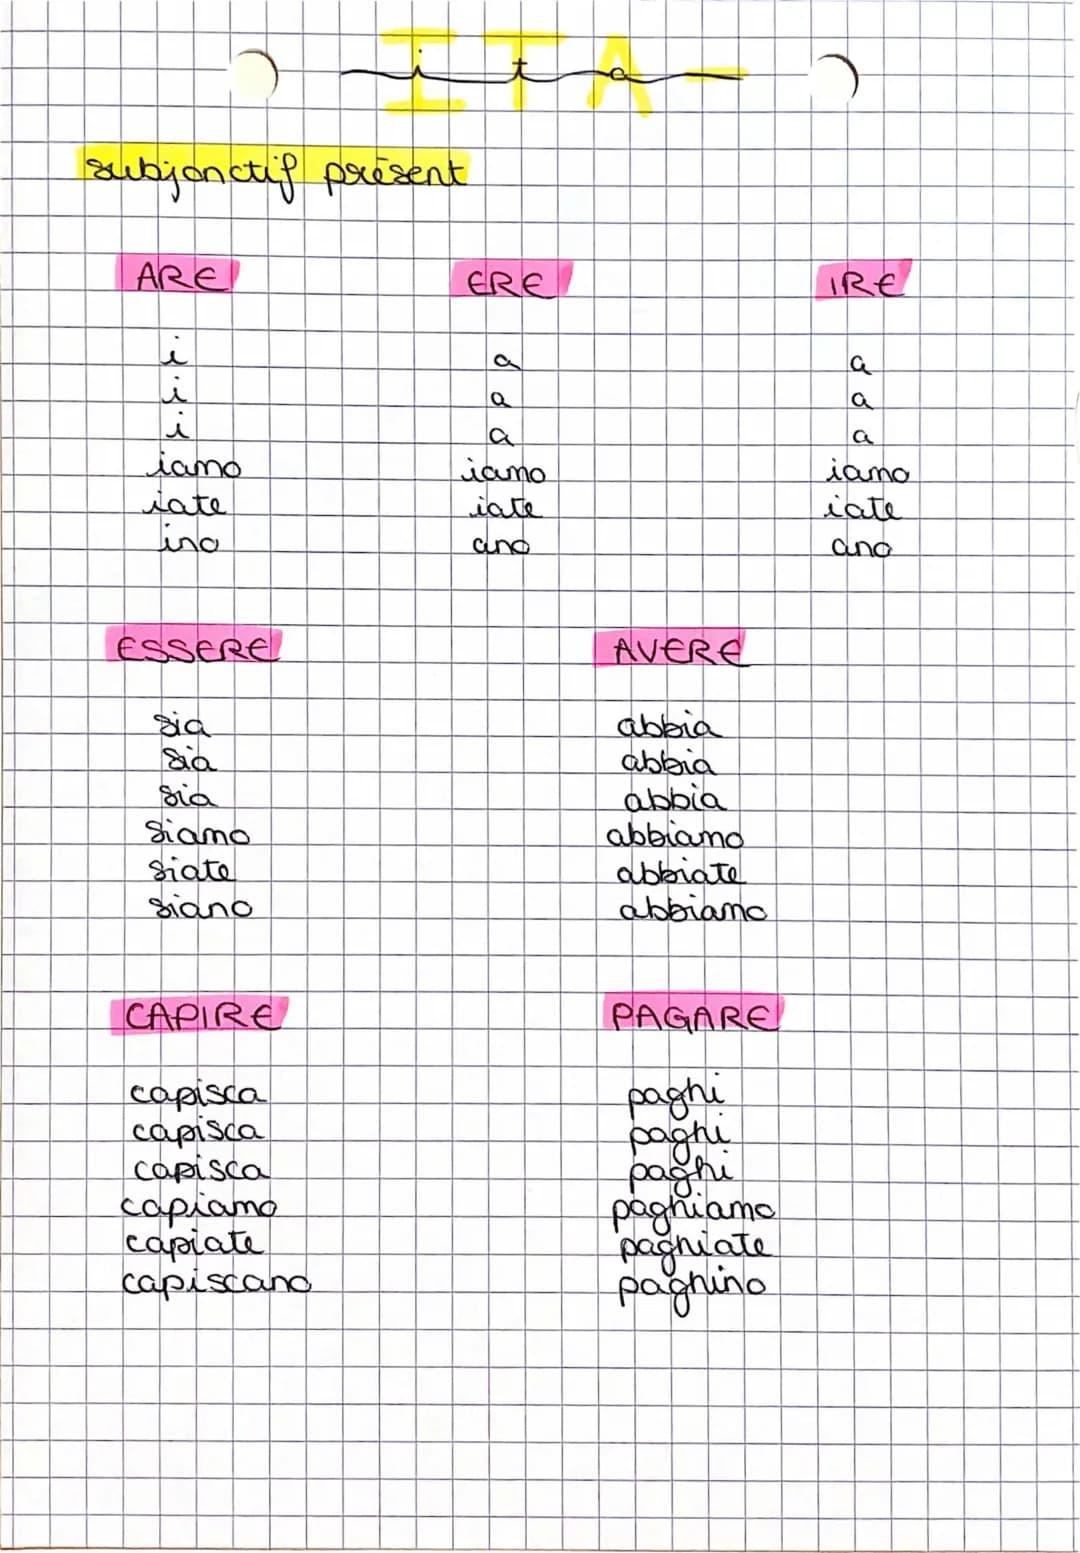 ITA
ita
subjonctif présent
ARE ERE IRE
i a a
i a a
i a a
iamo iamo iamo
iate iate iate
ino ano ano
ESSERE AVERE
sia abbia
sia abbia
sia abbia
siamo abbiamo
siate abbiate
siano abbiamo
CAPIRE PAGARE
capisca paghi
capisca paghi
capisca paghi
capiamo paghiamo
capiate paghiate
capiscano paghino